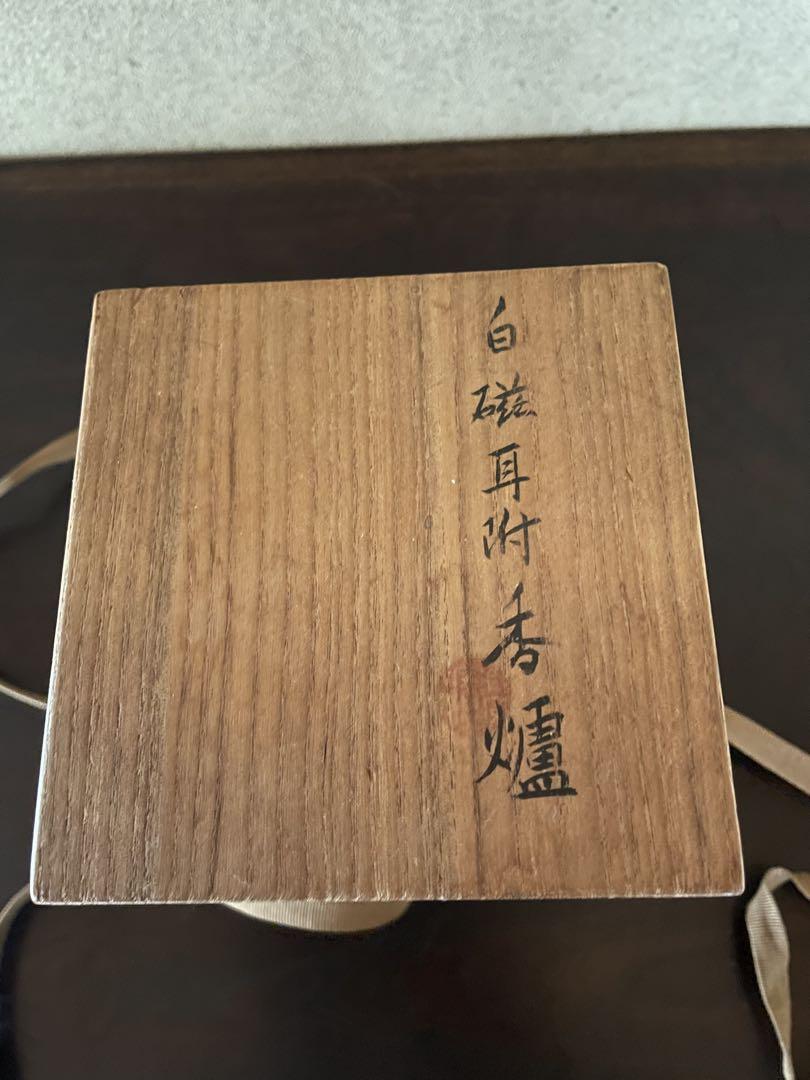 白磁耳附香爐